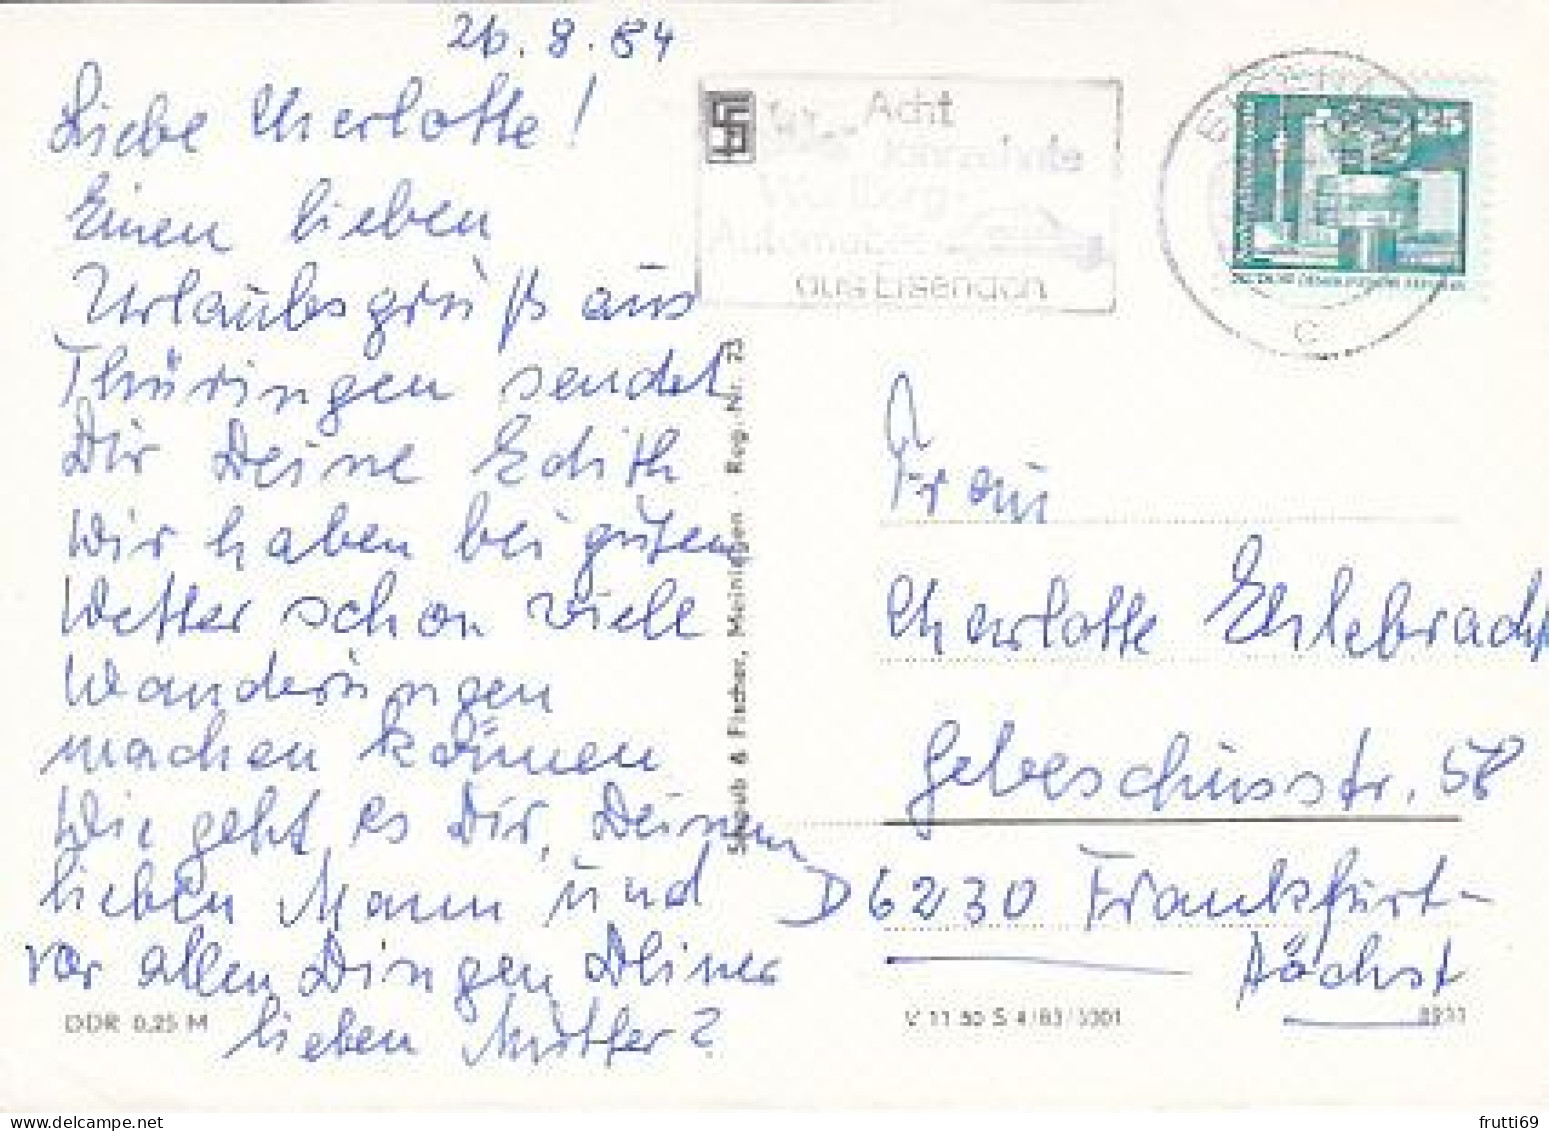 26.8.84
Liebe Charlotte!
Einen lieben
Urlaubsgruß aus
Thüringen sendet
Dir Deine Edith
Wir haben bei gutem
Wetter schon viele
Wanderungen
machen können
Wie geht es Dir, Deinem
lieben Mann und
vor allen Dingen Deiner
lieben Mutter?
DDR 0,25 M
Straub & Fischer, Meiningen · Reg.-Nr. 73
Acht
Jahrzehnte
Wartburg-
Automobile
aus Eisenach
Frau
Charlotte Ehlebracht
Gebeschusstr. 58
D 6230 Frankfurt-
Höchst
V 11 50 S 4/83/3301